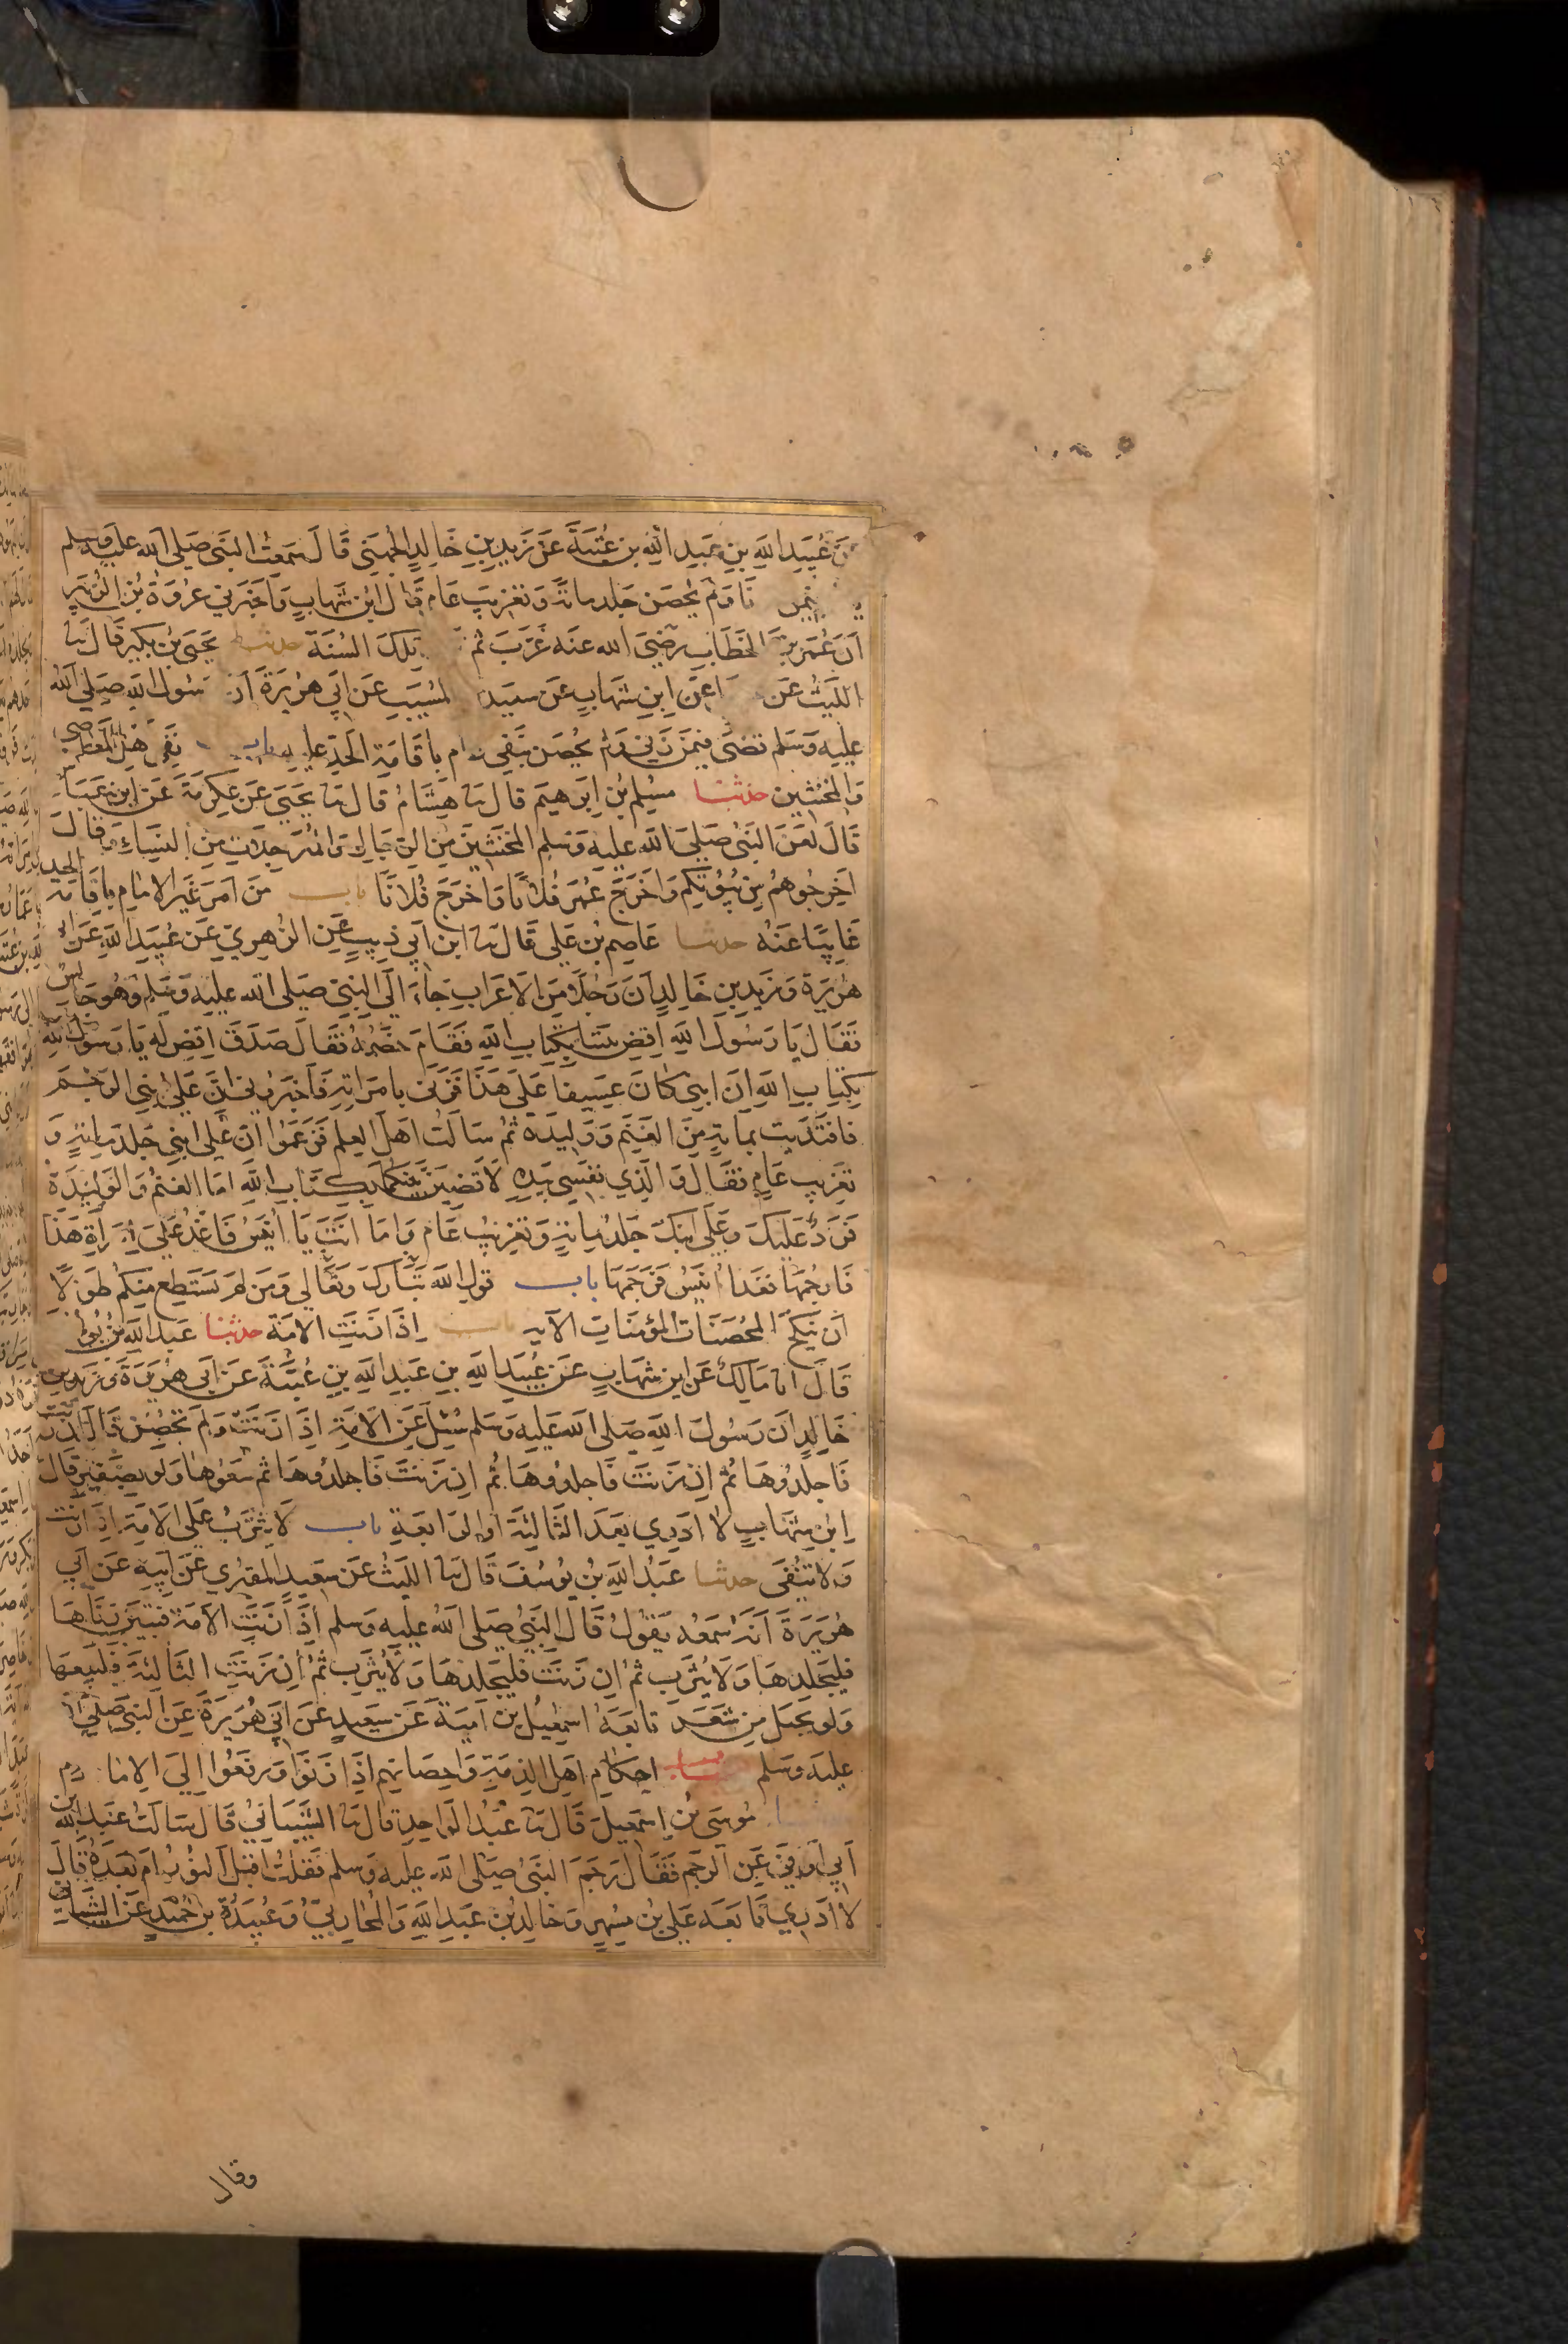 عن عبيد الله بن عبد الله بن عتبة عن زيد بن خالد الجهني قال سمعت النبي صلى الله عليه وسلم
يامر فيمن زنا ولم يحصن جلد مائة وتغريب عام قال ابن شهاب واخبرني عروة بن الزبير
ان عمر بن الخطاب رضي الله عنه غرب ثم تلك السنة حدثنا يحيى بن بكير قال ثنا
الليث عن عن ابن شهاب عن سعيد المسيب عن ابي هريرة ان رسول الله صلى الله
عليه وسلم قضى فيمن زني ولم يحصن بنفي عام باقامة الحد عليه باب نفي اهل المعاصي
والمخنثين حدثنا مسلم بن ابرهيم قال ثنا هشام قال ثنا يحيى عن عكرمة عن ابن عباس
قال لعن النبي صلى الله عليه وسلم المخنثين من الرجال والمترجلات من النساء وقال
اخرجوهم من بيوتكم واخرج عمر فلانا واخرج فلانا باب من امر غير الامام باقامة الحد
غايبا عنه حدثنا عاصم بن علي قال ثنا ابن ابي ذيب عن الزهري عن عبيد الله عن ابي
هريرة وزيد بن خالد ان رجلا من الاعراب جاء الى النبي صلى الله عليه وسلم وهو جالس
فقال يا رسول الله اقض بيننا بكتاب الله فقام خصمه فقال صدق اقض له يا رسول الله
بكتاب الله ان ابني كان عسيفا على هذا فزنى بامراته فاخبروني ان على ابني الرجم
فافتديت بماية من الغنم ووليدة ثم سالت اهل العلم فزعموا ان على ابني جلد مائة و
تغريب عام فقال والذي نفسي بيده لاقضين بينكما بكتاب الله اما الغنم والوليدة
فرد عليك وعلى ابنك جلد مائة وتغريب عام واما انت يا انيس فاغد على امراة هذا
فارجمها فغدا انيس فرجمها باب قول الله تبارك وتعالى ومن لم يستطع منكم طولا
ان ينكح المحصنات المؤمنات الآية باب اذا زنت الامة حدثنا عبد الله بن يوسف
قال انا مالك عن ابن شهاب عن عبيد الله بن عبد الله بن عتبة عن ابي هريرة وزيد بن
خالد ان رسول الله صلى الله عليه وسلم سئل عن الامة اذا زنت ولم تحصن قال ان زنت
فاجلدوها ثم ان زنت فاجلدوها ثم ان زنت فاجلدوها ثم بيعوها ولو بضفير قال
ابن شهاب لا ادري بعد الثالثة او الرابعة باب لا يثرب على الامة اذا زنت
ولا تنفى حدثنا عبد الله بن يوسف قال ثنا الليث عن سعيد المقبري عن ابيه عن ابي
هريرة انه سمعه يقول قال النبي صلى الله عليه وسلم اذا زنت الامة فتبين زناها
فليجلدها ولا يثرب ثم ان زنت فليجلدها ولا يثرب ثم ان زنت الثالثة فليبعها
ولو بحبل من شعر تابعه اسمعيل بن امية عن سعيد عن ابي هريرة عن النبي صلى الله
عليه وسلم باب احكام اهل الذمة واحصانهم اذا زنوا ورفعوا الى الامام
حدثنا موسى بن اسمعيل قال ثنا عبد الواحد قال ثنا الشيباني قال سالت عبد الله بن
ابي اوفى عن الرجم فقال رجم النبي صلى الله عليه وسلم فقلت اقبل النور ام بعده قال
لا ادري تابعه علي بن مسهر وخالد بن عبد الله والمحاربي وعبيدة بن حميد عن الشيباني
وقال